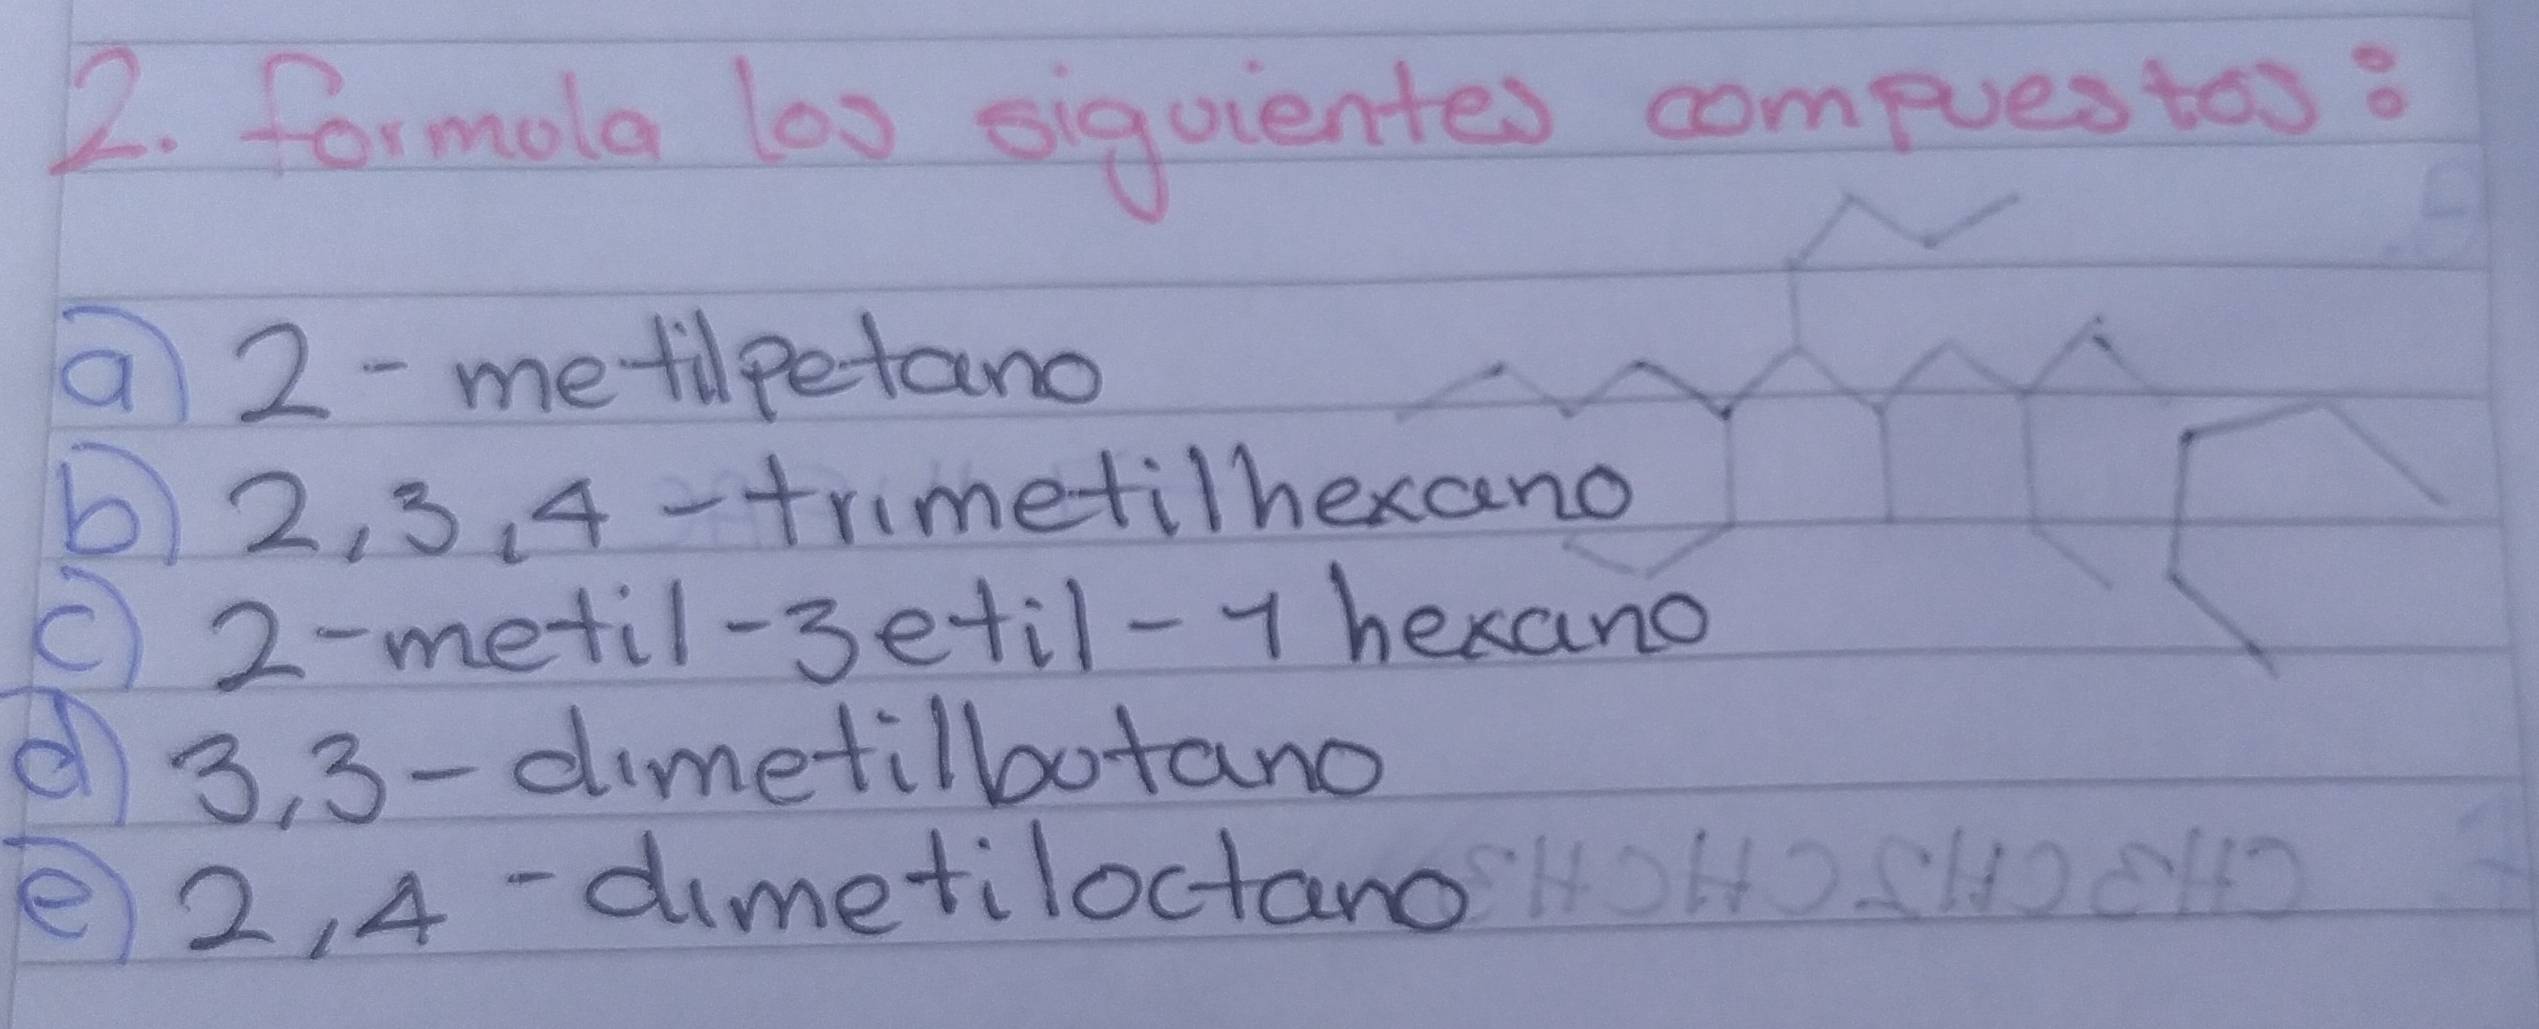 2. formula los siguientes compuestos:
a) 2-metilpetano
b) 2,3,4-trimetilhexano
c) 2-metil-3etil-1 hexano
d) 3,3-dimetilbutano
e) 2,4-dimetiloctano